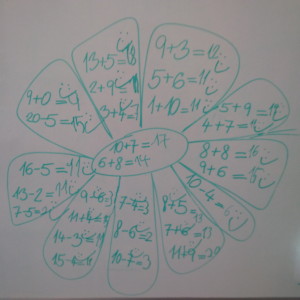 9+3=12
5+6=11
1+10=11
13+5=18
2+9=11
9+0=9
20-5=15
5+9=14
4+7=11
10+7=17
6+8=14
8+8=16
9+6=15
10-4=6
16-5=11
13-2=11
7-5=2
9+6=15
11+4=15
7-4=3
8-6=2
10-7=3
8+5=13
7+6=13
11+9=20